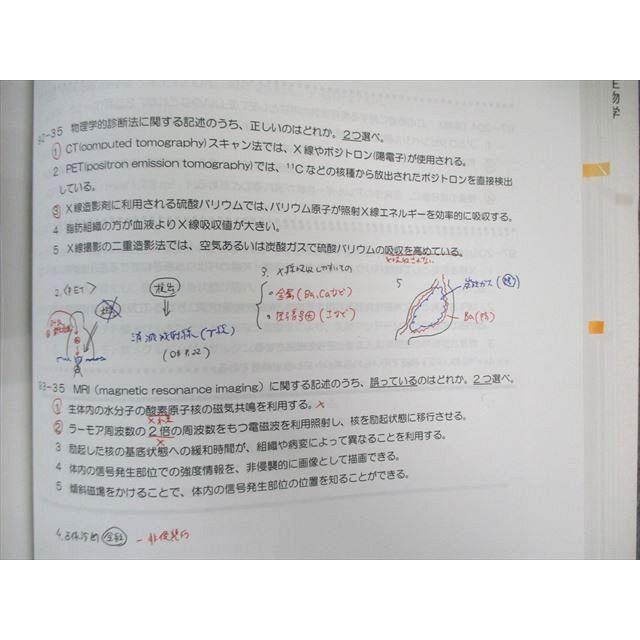 生物学
92-35 物理学的診断法に関する記述のうち、正しいのはどれか。2つ選べ。
① CT(computed tomography)スキャン法では、X線やポジトロン(陽電子)が使用される。
2 PET(positron emission tomography)では、¹¹Cなどの核種から放出されたポジトロンを直接検出
している。
③ X線造影剤に利用される硫酸バリウムでは、バリウム原子が照射X線エネルギーを効率的に吸収する。
4 脂肪組織の方が血液よりX線吸収値が大きい。
5 X線撮影の二重造影法では、空気あるいは炭酸ガスで硫酸バリウムの吸収を高めている。
2. <PET>
検出
消滅放射線(γ線)
3.
・金属(Ba, Caなど)
5
炭酸ガス
Ba
93-35 MRI(magnetic resonance imaging)に関する記述のうち、誤っているのはどれか。2つ選べ。
① 生体内の水分子の酸素原子核の磁気共鳴を利用する。×
×水素
② ラーモア周波数の2倍の周波数をもつ電磁波を利用照射し、核を励起状態に移行させる。
×
3 励起した核の基底状態への緩和時間が、組織や病変によって異なることを利用する。
4 体内の信号発生部位での強度情報を、非侵襲的に画像として描画できる。
5 傾斜磁場をかけることで、体内の信号発生部位の位置を知ることができる。
4.
- 非侵襲的